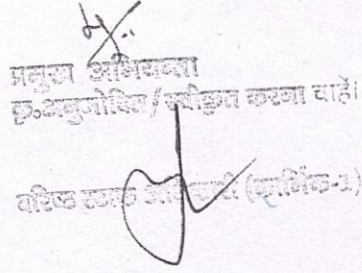 प्रमुख अभियन्ता
कृ.अनुमोदित/स्वीकृत करना चाहें।
वरिष्ठ स्टाफ अधिकारी (कार्मिक-1)